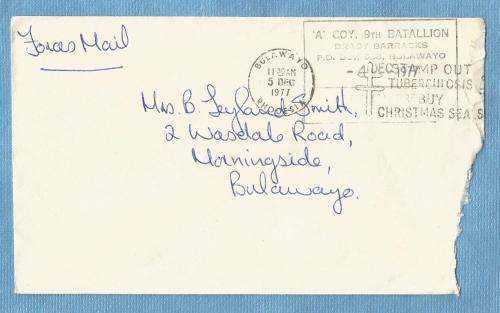 Forces Mail
"A" COY. 9TH BATALLION
BRADY BARRACKS
BULAWAYO
-4 DEC 1977
BULAWAYO
11 AM
5 DEC
1977
STAMP OUT
TUBERCULOSIS
BUY
CHRISTMAS SEALS
Mrs. B. Leyland Smith,
2 Wasdale Road,
Morningside,
Bulawayo.